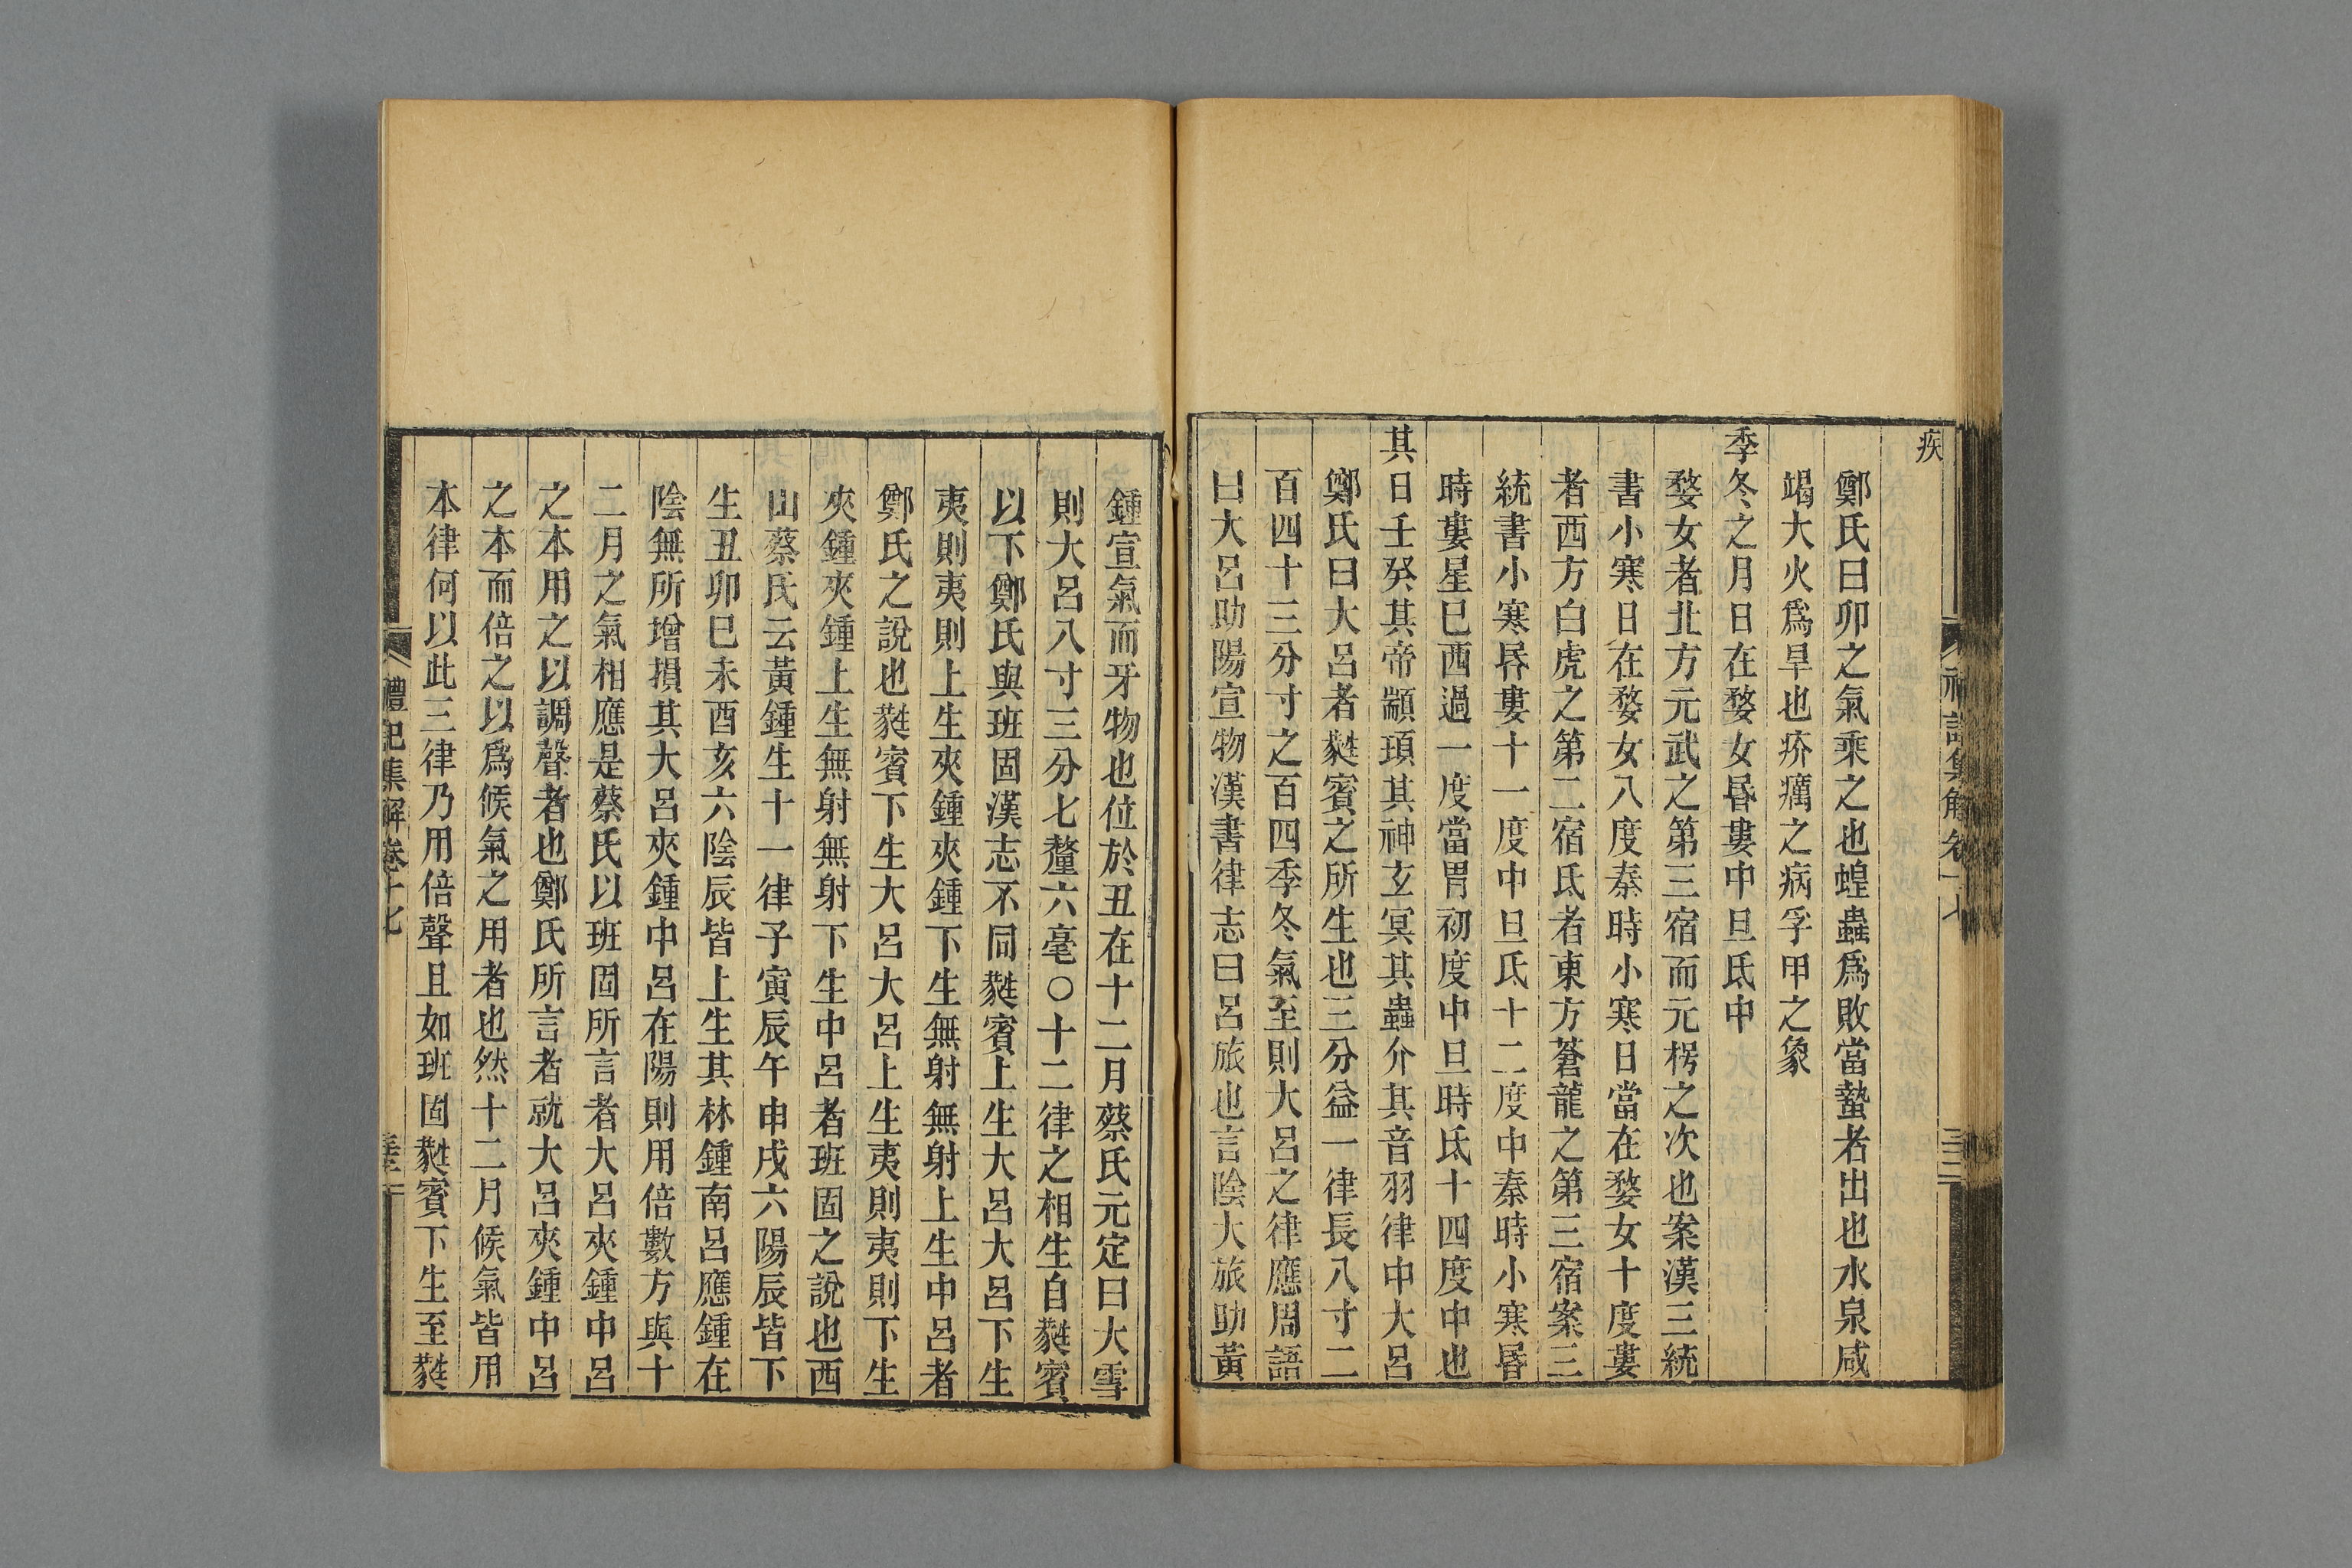 疾
鄭氏曰卯之氣乘之也蝗蟲爲敗當蟄者出也水泉咸
竭大火爲旱也疥癘之病孚甲之象
季冬之月日在婺女昬婁中旦氐中
婺女者北方元武之第三宿而元枵之次也案漢三統
書小寒日在婺女八度秦時小寒日當在婺女十度婁
者西方白虎之第二宿氐者東方蒼龍之第三宿案三
統書小寒昬婁十一度中旦氐十二度中秦時小寒昬
時婁星巳西過一度當胃初度中旦時氐十四度中也
其日壬癸其帝顓頊其神玄冥其蟲介其音羽律中大呂
鄭氏曰大呂者蕤賓之所生也三分益一律長八寸二
百四十三分寸之百四季冬氣至則大呂之律應周語
曰大呂助陽宣物漢書律志曰呂旅也言陰大旅助黃
鍾宣氣而牙物也位於丑在十二月蔡氏元定曰大雪
則大呂八寸三分七釐六毫○十二律之相生自蕤賓
以下鄭氏與班固漢志不同蕤賓上生大呂大呂下生
夷則夷則上生夾鍾夾鍾下生無射無射上生中呂者
鄭氏之說也蕤賓下生大呂大呂上生夷則夷則下生
夾鍾夾鍾上生無射無射下生中呂者班固之說也西
山蔡氏云黃鍾生十一律子寅辰午申戌六陽辰皆下
生丑卯巳未酉亥六陰辰皆上生其林鍾南呂應鍾在
陰無所增損其大呂夾鍾中呂在陽則用倍數方與十
二月之氣相應是蔡氏以班固所言者大呂夾鍾中呂
之本用之以調聲者也鄭氏所言者就大呂夾鍾中呂
之本而倍之以爲候氣之用者也然十二月候氣皆用
本律何以此三律乃用倍聲且如班固蕤賓下生至蕤
禮記集解卷十七